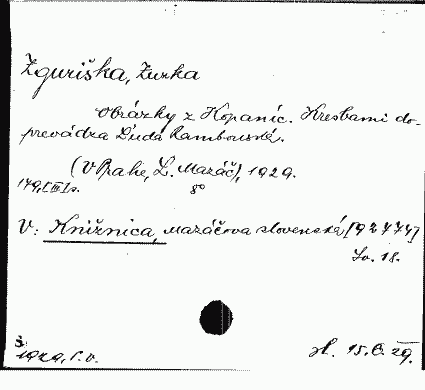 Zguriška, Zuzka
Obrázky z Kopaníc. Kresbami do-
prevádza Ľuda Rambouské.
(V Praze, L. Mazáč), 1929.
179, [III] s. 8°
V: Knižnica, Mazáčova slovenská, [92474]
Sv. 18.
Š
1929, P. v. 15.6.29.